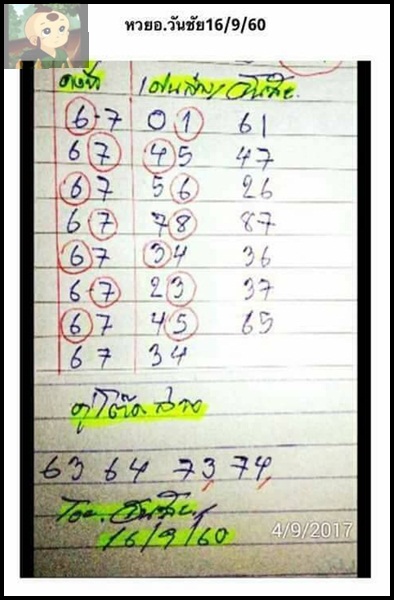 หวยอ.วันชัย16/9/60
6-7 01 61
67 45 47
67 56 26
67 78 87
67 34 36
6-7 23 37
67 45 65
67 34
คู่โต๊ด ล่าง
63 64 73 74
16/9/60
4/9/2017